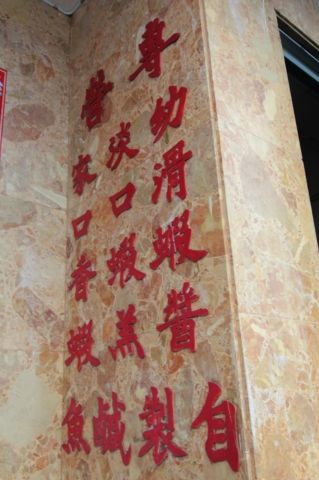 專營
幼滑蝦醬
淡口蝦羔
家口香蝦
自製鹹魚